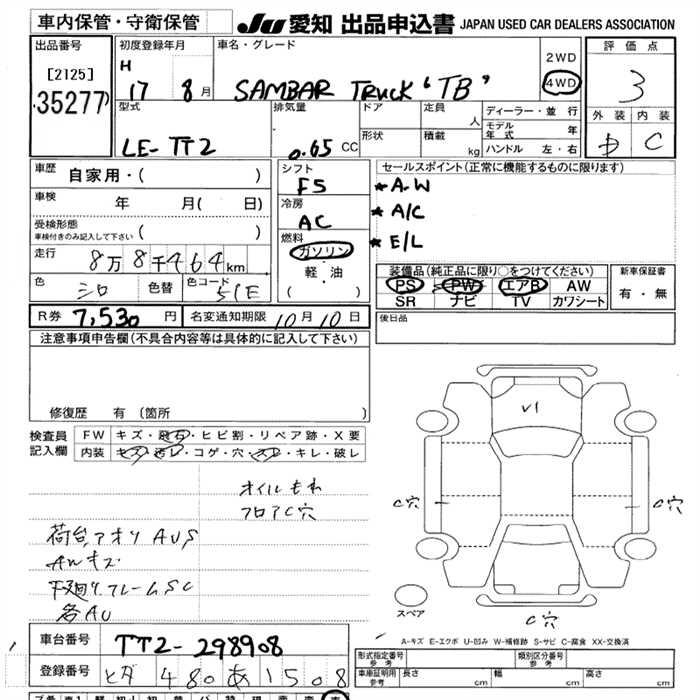 車内保管・守衛保管
JU 愛知 出品申込書 JAPAN USED CAR DEALERS ASSOCIATION
出品番号
[2125]
35277
初度登録年月
H 17 8 月
車名・グレード
SAMBAR TRUCK "TB"
2WD
4WD
評価点
3
外装 内装
D C
型式
LE-TT2
排気量
0.65 CC
ドア
形状
定員 人
積載 kg
ディーラー・並行
モデル年式 年
ハンドル 左・右
車歴 自家用・( )
車検 年 月( 日)
受検形態
車検付きのみ記入して下さい ( )
走行 8万8千464 km
色 シロ 色替 色コード 51E
シフト
F5
冷房
AC
燃料
ガソリン
軽・油
( )
セールスポイント(正常に機能するものに限ります)
★A.W
★A/C
★E/L
装備品(純正品に限り○をつけてください)
PS PW エアB AW
SR ナビ TV カワシート
新車保証書
有・無
R券 7,530 円 名変通知期限 10月10日
後日品
注意事項申告欄(不具合内容等は具体的に記入して下さい)
修復歴 有(箇所 )
検査員記入欄
FW キズ・飛石・ヒビ割・リペア跡・X要
内装 キズ・汚レ・コゲ・穴・スレ・キレ・破レ
オイルもれ
フロアC穴
荷台,アオリ AUS
AWキズ
下廻り,フレームSC
各AU
V1
C穴
C穴
C穴
スペア
A-キズ E-エクボ U-凹み W-補修跡 S-サビ C-腐食 XX-交換済
車台番号 TT2-298908
登録番号 480 あ 1508
形式指定番号 参考
類別区分番号 参考
車庫証明用 参考 長さ cm 幅 cm 高さ cm